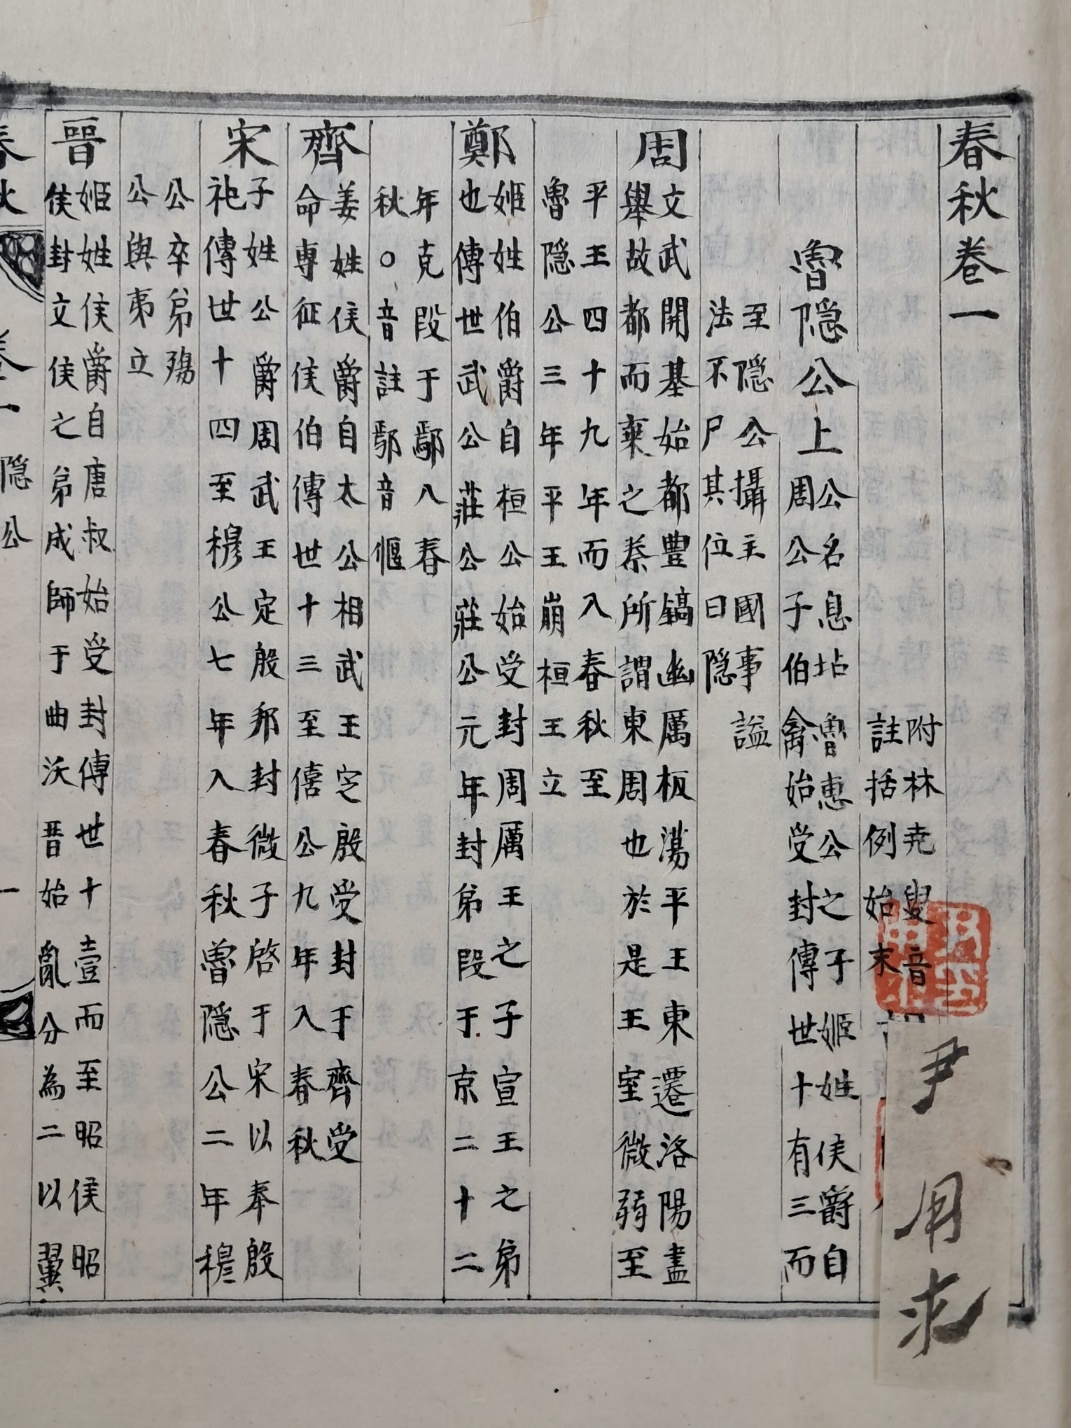 春秋卷一
附林尭叟音
註括例始末
魯隐公上公名息姑魯惠公之子姬姓侯爵自
周公子伯禽始受封傳世十有三而
至隐公攝主國事謚
法不尸其位曰隐
周文武開基始都豐鎬幽厲板蕩平王東遷洛陽盡
舉故都而棄之秦所謂東周也於是王室微弱至
平王四十九年而入春秋至
魯隐公三年平王崩桓王立
鄭姬姓伯爵自桓公始受封周厲王之子宣王之弟
也傳世武公莊公莊公元年封弟段于京二十二
年克段于鄢入春
秋○音註鄢音
齊姜姓侯爵自太公相武王定殷受封于齊受
命專征侯伯傳世十三至僖公九年入春秋
宋子姓公爵周武王定殷邦封微子啓于宋以奉殷
祀傳世十四至穆公七年入春秋魯隐公二年穆
公卒弟殤
公與夷立
晉姬姓侯爵自唐叔始受封傳世十壹而至昭侯昭
侯封文侯之弟成師于曲沃晋始亂分為二以翼
春秋
卷一
隐公
一
尹用求